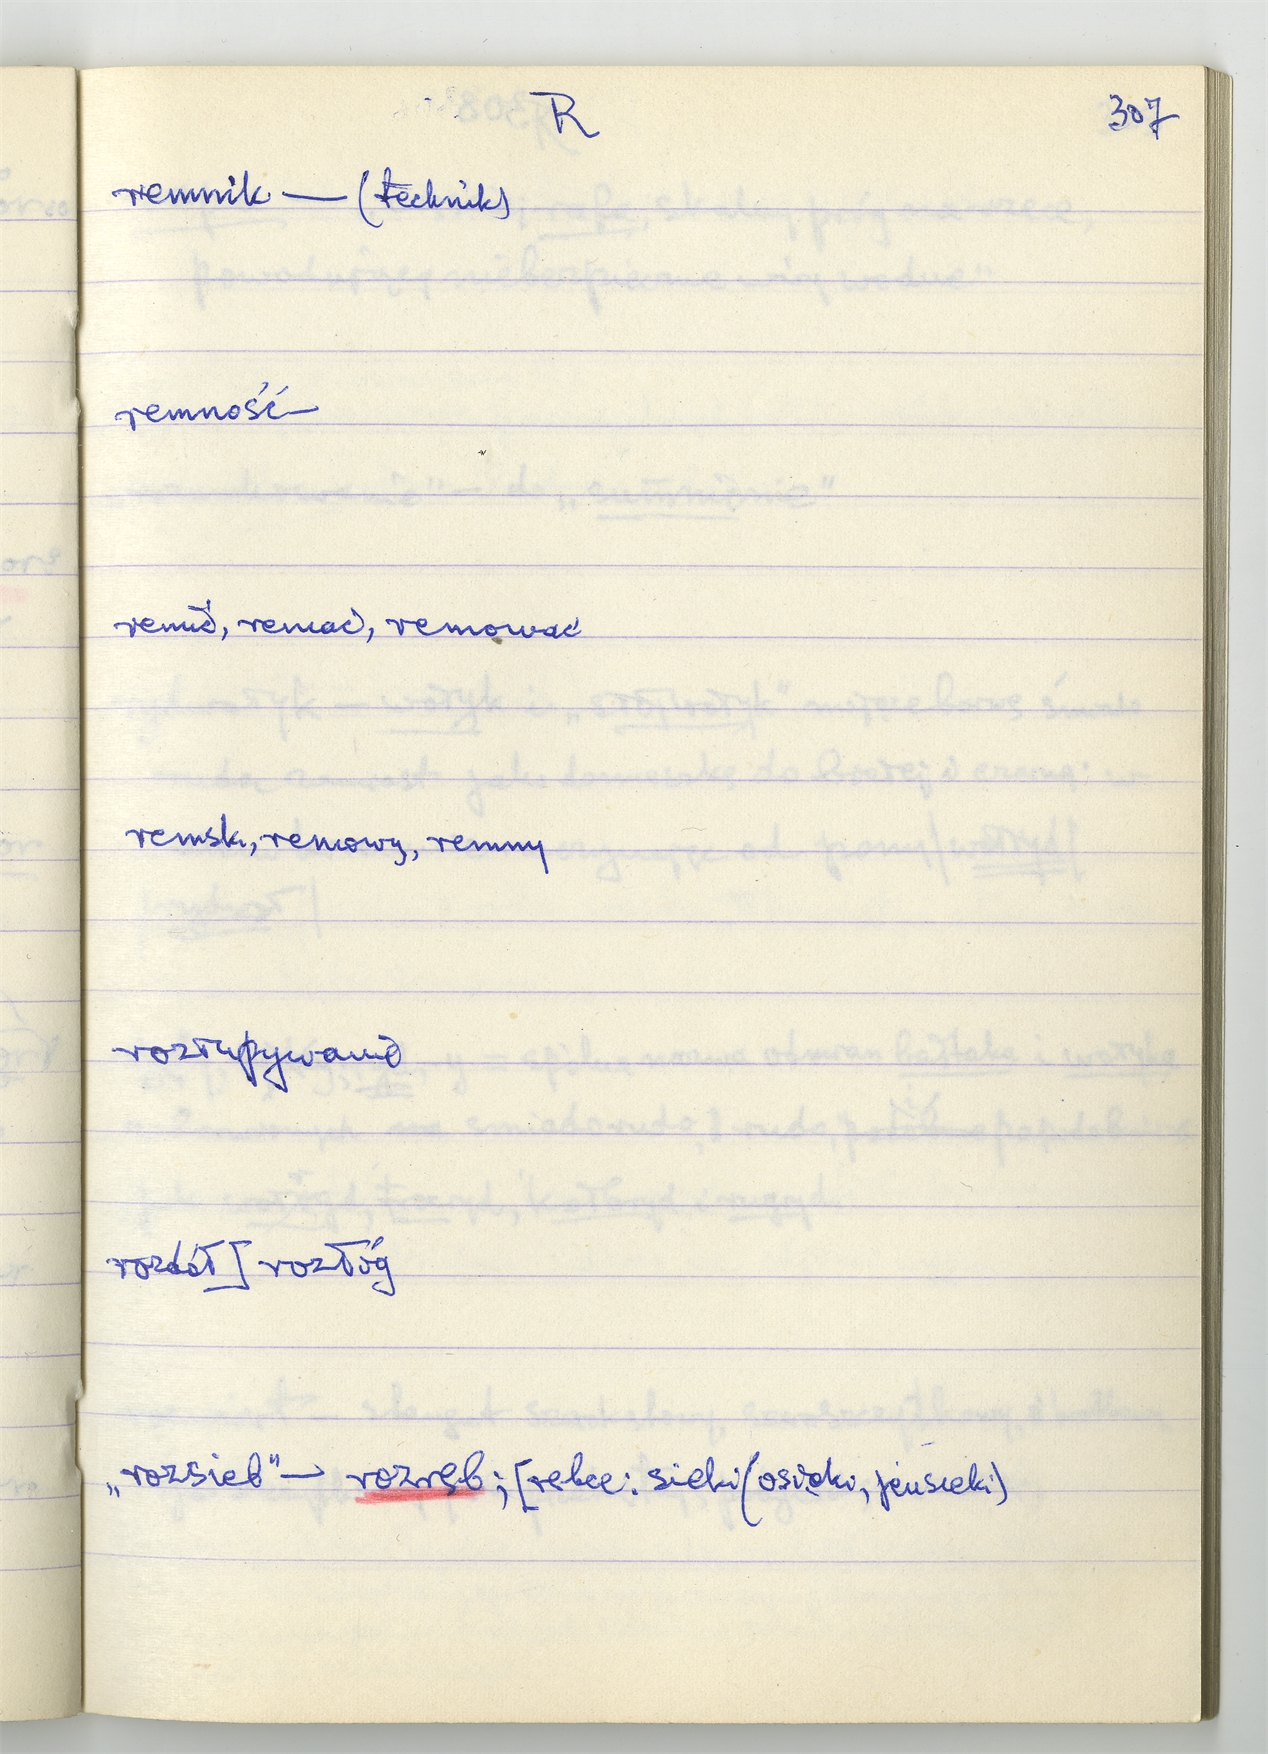 R 307
remnik — (technik)
remność —
remić, remać, remować
remski, remowy, remny
rozłupywanie
rozdół] rozłóg
„rozsieb" — rozręb; [rębce: sieki (osieki,